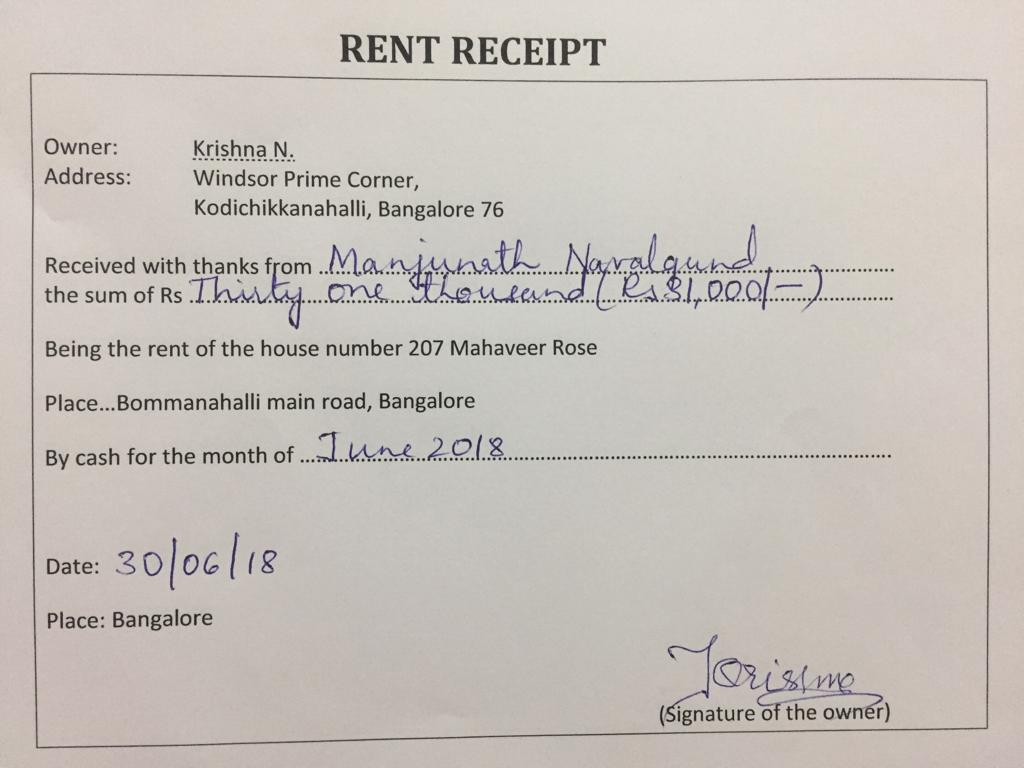 RENT RECEIPT
Owner: Krishna N.
Address: Windsor Prime Corner,
Kodichikkanahalli, Bangalore 76
Received with thanks from Manjunath Navalgund,
the sum of Rs Thirty one thousand (Rs 31,000/-)
Being the rent of the house number 207 Mahaveer Rose
Place...Bommanahalli main road, Bangalore
By cash for the month of ... June 2018
Date: 30/06/18
Place: Bangalore
(Signature of the owner)